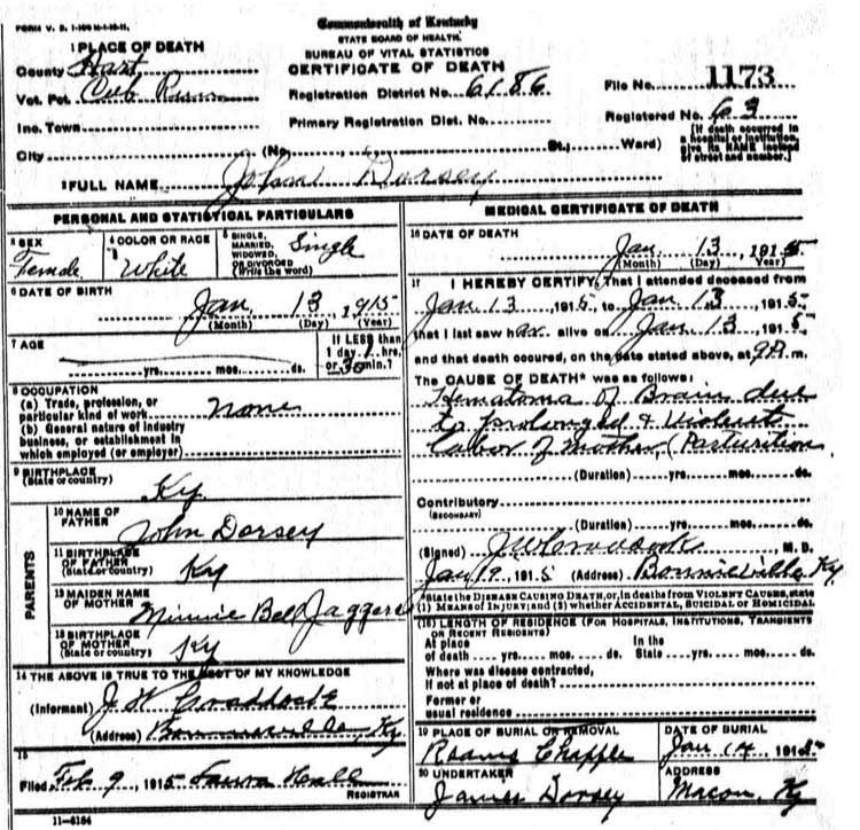 FORM V. S. 1-
Commonwealth of Kentucky
STATE BOARD OF HEALTH
BUREAU OF VITAL STATISTICS
CERTIFICATE OF DEATH
1 PLACE OF DEATH
County Hart
Vot. Pct. Cub Run
Inc. Town
City (No. , St.; Ward)
Registration District No. 6186
Primary Registration Dist. No.
File No. 1173
Registered No. 63
[If death occurred in a hospital or institution, give its NAME instead of street and number.]
2 FULL NAME John Dorsey
PERSONAL AND STATISTICAL PARTICULARS
3 SEX
Female
4 COLOR OR RACE
White
5 SINGLE, MARRIED, WIDOWED, OR DIVORCED (Write the word)
Single
6 DATE OF BIRTH
Jan. 13, 1915
(Month) (Day) (Year)
7 AGE
yrs. mos. ds.
If LESS than
1 day, 1 hrs.
or 30 min.?
8 OCCUPATION
(a) Trade, profession, or
particular kind of work none
(b) General nature of industry
business, or establishment in
which employed (or employer)
9 BIRTHPLACE
(State or country)
Ky
PARENTS
10 NAME OF FATHER
John Dorsey
11 BIRTHPLACE OF FATHER
(State or country) Ky
12 MAIDEN NAME OF MOTHER
Minnie Bell Jaggers
13 BIRTHPLACE OF MOTHER
(State or country) Ky
14 THE ABOVE IS TRUE TO THE BEST OF MY KNOWLEDGE
(Informant) J W Craddock
(Address) Bonnieville, Ky
15
Filed Feb 9, 1915 Laura Heall
REGISTRAR
11-6184
MEDICAL CERTIFICATE OF DEATH
16 DATE OF DEATH
Jan 13, 1915
(Month) (Day) (Year)
17 I HEREBY CERTIFY, That I attended deceased from
Jan 13 1915, to Jan 13, 1915,
that I last saw h alive on Jan 13, 1915
and that death occured, on the date stated above, at 9 A. m.
The CAUSE OF DEATH* was as follows:
Hematoma of Brain due
to prolonged & violent
labor of mother (Parturition
(Duration) yrs. mos. ds.
Contributory
(SECONDARY)
(Duration) yrs. mos. ds.
(Signed) J W Craddock, M. D.
Jan 19, 1915 (Address) Bonnieville Ky
*State the DISEASE CAUSING DEATH, or, in deaths from VIOLENT CAUSES, state
(1) MEANS OF INJURY; and (2) whether ACCIDENTAL, SUICIDAL or HOMICIDAL
(18) LENGTH OF RESIDENCE (FOR HOSPITALS, INSTITUTIONS, TRANSIENTS
OR RECENT RESIDENTS)
At place of death yrs. mos. ds. In the State yrs. mos. ds.
Where was disease contracted,
if not at place of death?
Former or
usual residence
19 PLACE OF BURIAL OR REMOVAL
Roams Chapple
DATE OF BURIAL
Jan 14, 1915
20 UNDERTAKER
James Dorsey
ADDRESS
Macon, Ky